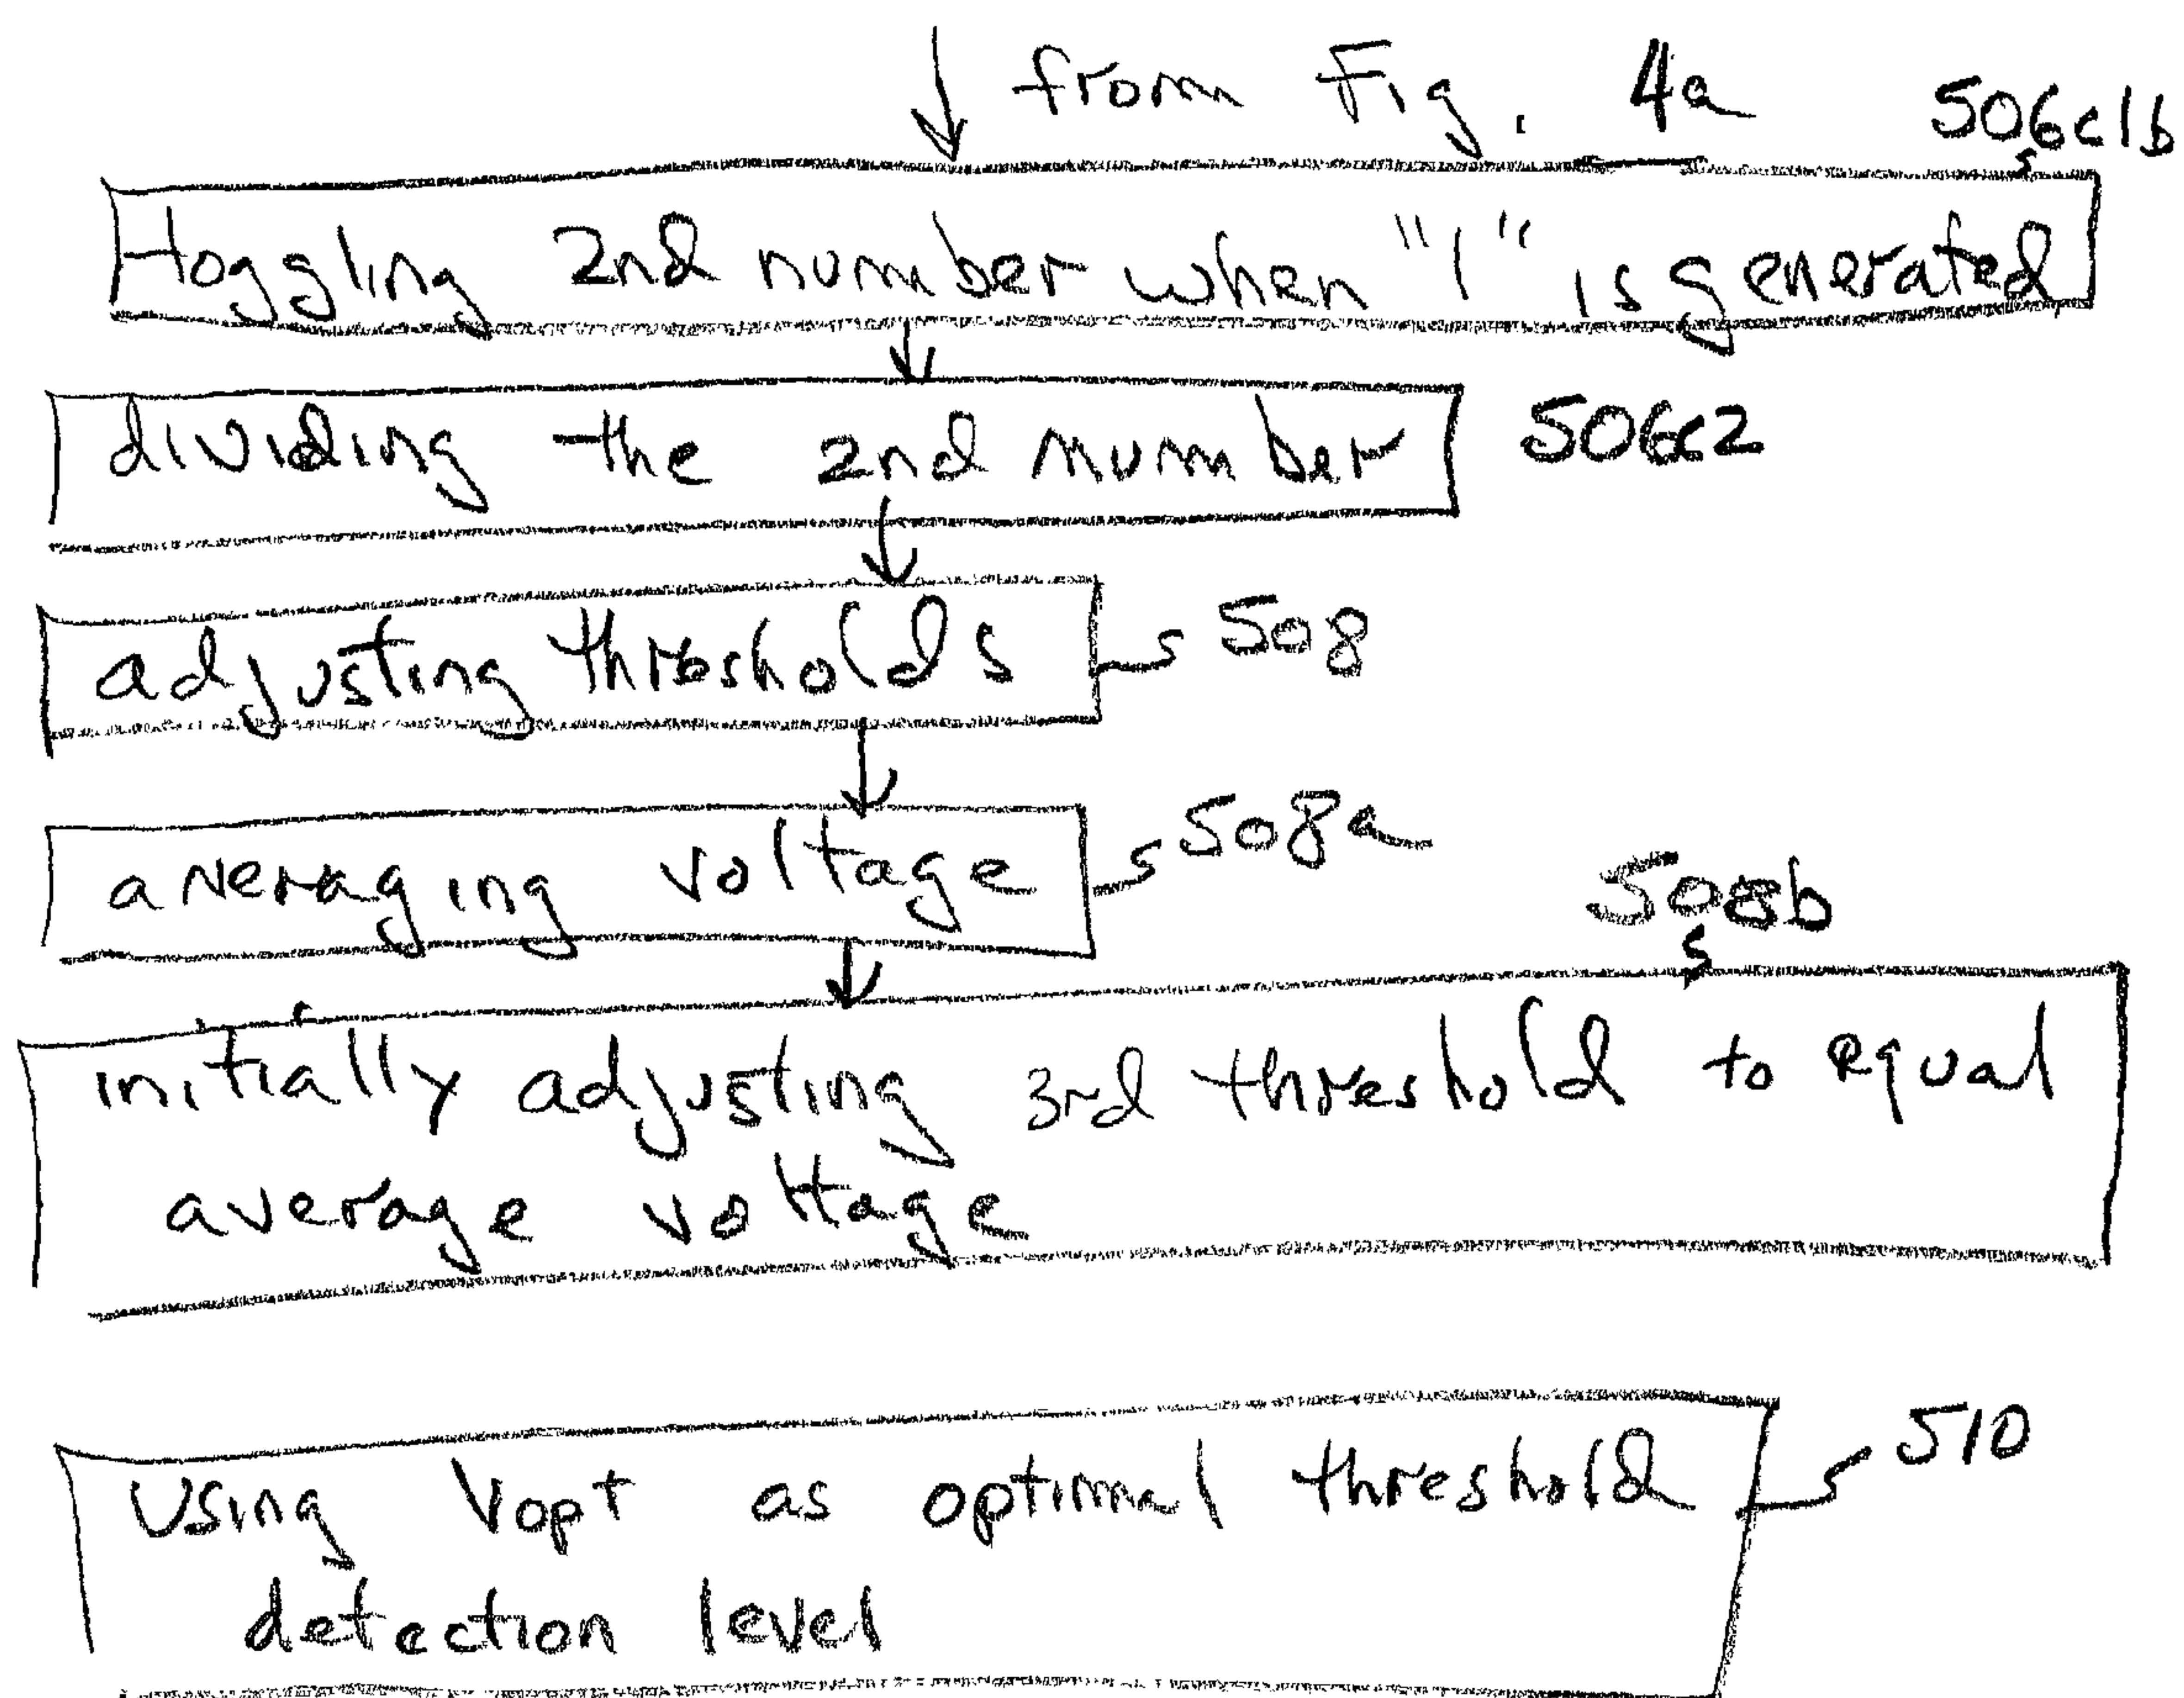 from Fig. 4a
506c1b
toggling 2nd number when "1" is generated
dividing the 2nd number 506c2
adjusting thresholds 508
averaging voltage 508a
508b
initially adjusting 3rd threshold to equal
average voltage
Using Vopt as optimal threshold 510
detection level